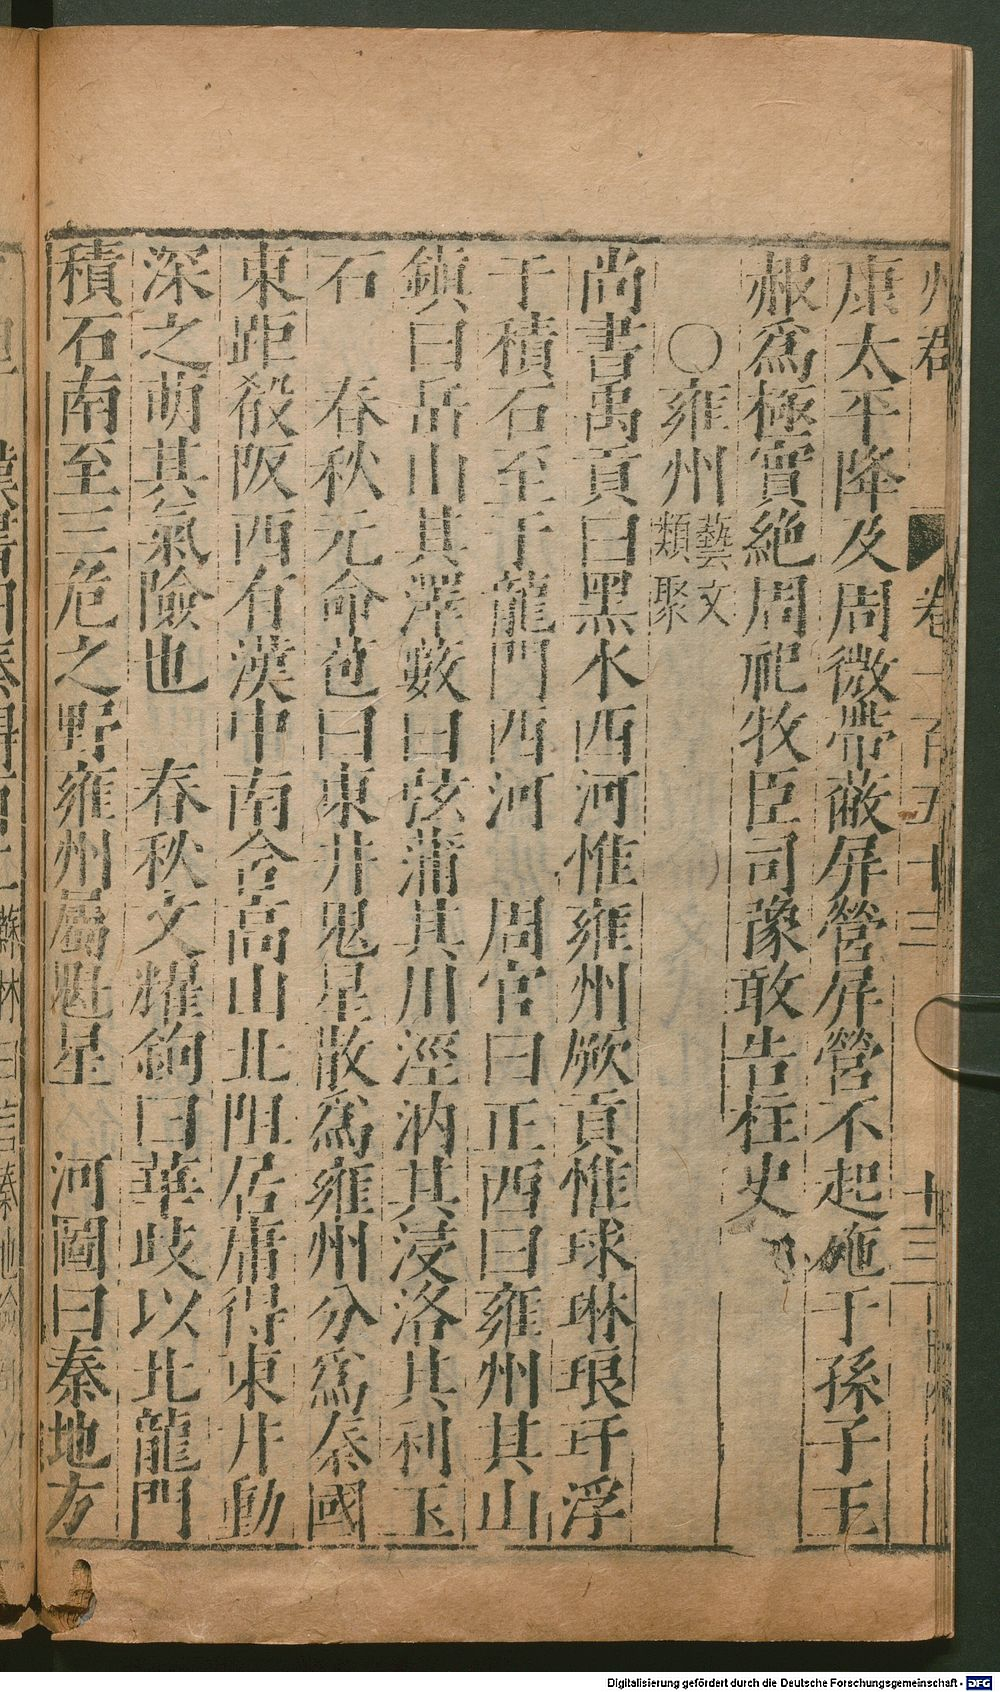 州郡 卷一百五十三 十三
康太平降及周微帶蔽屏營屏營不起施于孫子王
赧爲極實絶周祀牧臣司豫敢告柱史
〇雍州藝文類聚
尚書禹貢曰黑水西河惟雍州厥貢惟球琳琅玕浮
于積石至于龍門西河 周官曰正西曰雍州其山
鎮曰岳山其澤藪曰弦蒲其川涇汭其浸洛其利玉
石 春秋元命苞曰東井鬼星散爲雍州分爲秦國
東距殽阪西有漢中南含高山北阻居庸得東井動
深之萌其氣險也 春秋文耀鉤曰華歧以北龍門
積石南至三危之野雍州屬魁星 河圖曰秦地方
蘇林曰言秦地險
Digitalisierung gefördert durch die Deutsche Forschungsgemeinschaft - DFG